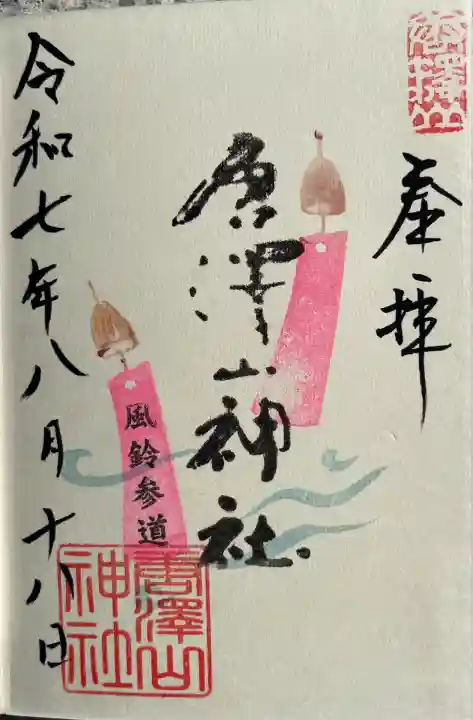 奉拝
唐澤山神社
風鈴参道
唐澤山
神社
令和七年八月十八日